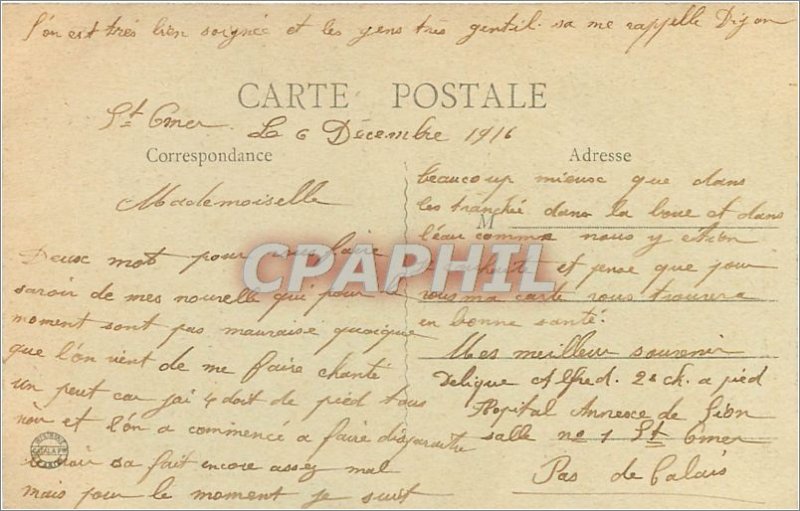 l'on est très bien soignée et les gens très gentil. sa me rappelle Dijon
CARTE POSTALE
St Omer. Le 6 Décembre 1916
Correspondance
Mademoiselle
Deux mot pour vous faire
savoir de mes nouvelle qui pour le
moment sont pas mauvaise quoique
que l'on vient de me faire chanté
un peut car jai 4 doit de pied tous
noir et l'on a commencé a faire disparaitre
noir sa fait encore assez mal
mais pour le moment je suit
Adresse
beaucoup mieux que dans
M
les tranchée dans la boue et dans
l'eau comme nous y étion
et pense que pour
vous ma carte vous trouvera
en bonne santé.
Mes meilleur souvenir
Deligue Alfred. 2e ch. a pied
Hopital Annexe de
salle no 1 St Omer
Pas de Calais
CPAPHIL